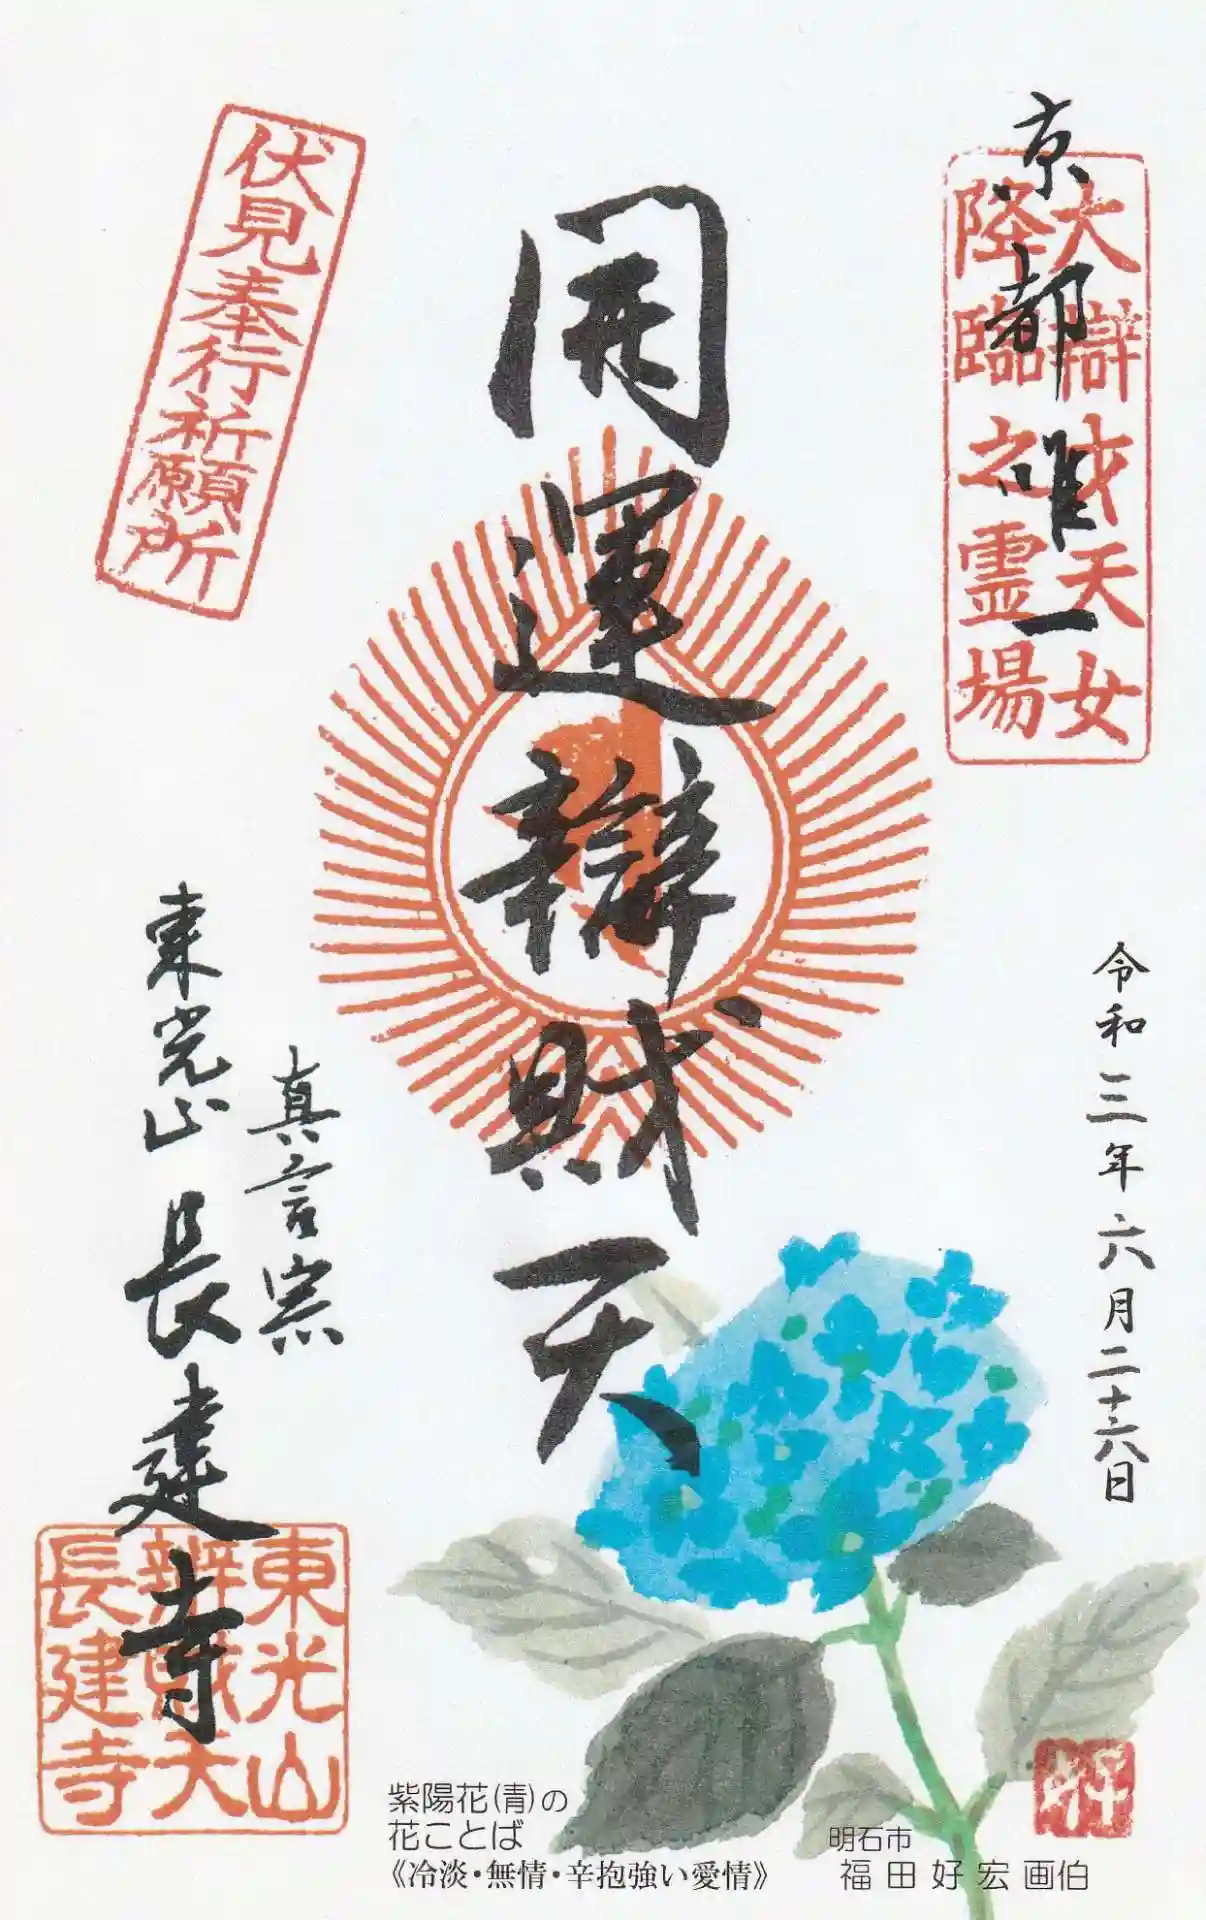 京都唯一
大辯才天女
降臨之霊場
令和三年六月二十六日
開運辯財天
伏見奉行祈願所
真言宗
東光山 長建寺
東光山
辨財天
長建寺
紫陽花(青)の
花ことば
《冷淡・無情・辛抱強い愛情》
明石市
福田好宏画伯